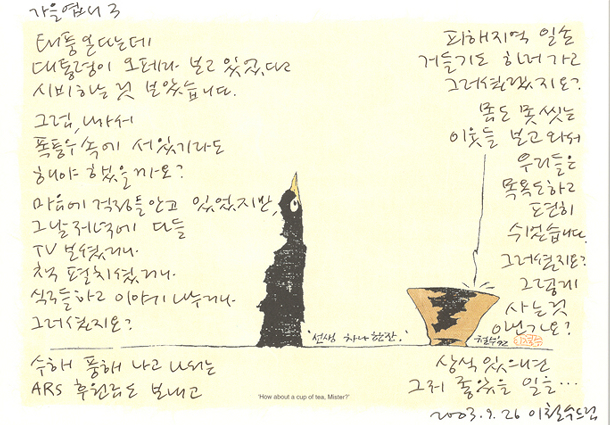 가을엽서 3
태풍온다는데
대통령이 오페라 보고 있었다고
시비하는것 보았습니다.
그럼, 나가서
폭풍우속에 서있기라도
해야 했을까요?
마음에 걱정들안고 있었지만,
그날저녁에 다들
TV 보셨거나
책 펼치셨거나
식구들하고 이야기 나누거나
그러셨지요?
수해 풍해 나고 나서는
ARS 후원금도 보내고
피해지역 일손
거들기도 하러 가고
그러셨겠지요?
몸도 못씻는
이웃들 보고와서
우리들은
목욕도하고
도현히
쉬었습니다.
그러셨지요?
그렇게
사는것
아닌가요?
상식 있으면
그저 좋았을 일을…
2003.9.26 이철수드림
'선생 차나 한잔.'
'How about a cup of tea, Mister?'